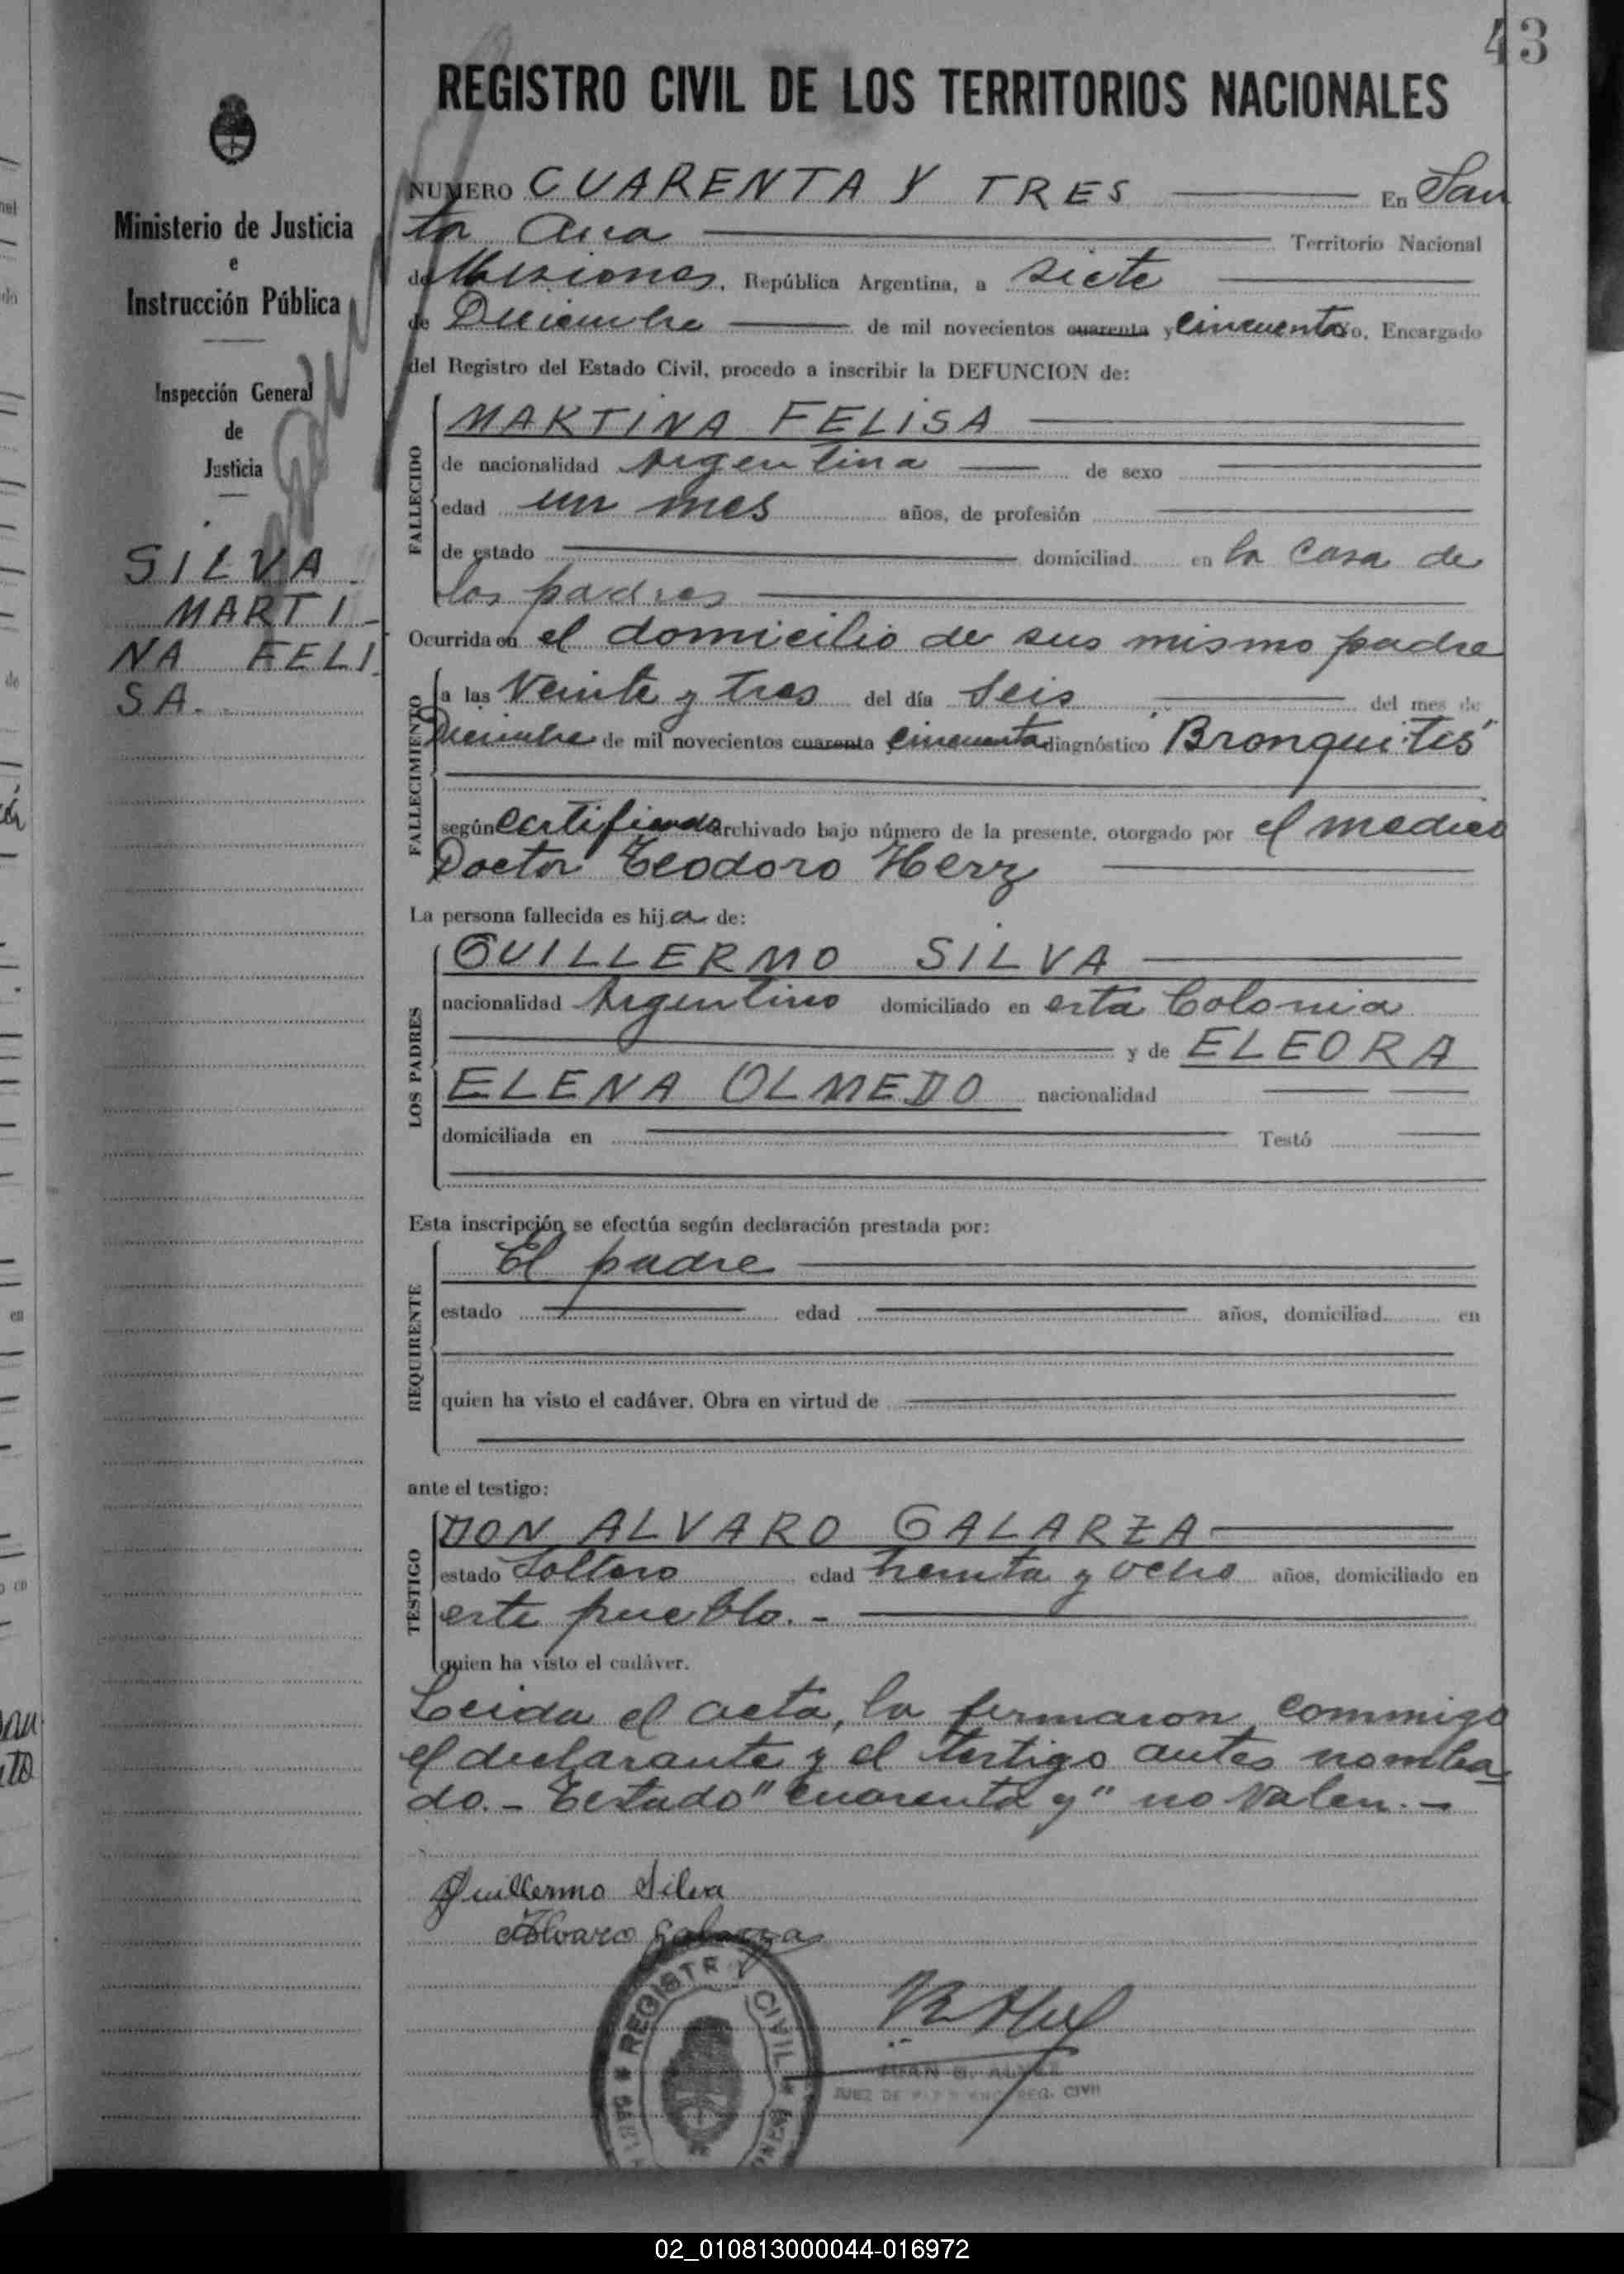 43
REGISTRO CIVIL DE LOS TERRITORIOS NACIONALES
Ministerio de Justicia
e
Instrucción Pública
Inspección General
de
Justicia
SILVA
MARTI-
NA FELI
SA.
NUMERO CUARENTA Y TRES En San
ta Ana Territorio Nacional
de Misiones, República Argentina, a siete
de Diciembre de mil novecientos cuarenta y cincuenta yo, Encargado
del Registro del Estado Civil, procedo a inscribir la DEFUNCION de:
FALLECIDO
MARTINA FELISA
de nacionalidad Argentina de sexo
edad un mes años, de profesión
de estado domiciliad en la casa de
los padres
Ocurrida en el domicilio de sus mismo padre
FALLECIMIENTO
a las Veinte y tres del día Seis del mes de
Diciembre de mil novecientos cuarenta y cincuenta diagnóstico "Bronquitis"
según certificado archivado bajo número de la presente, otorgado por el medico
Doctor Teodoro Herz
La persona fallecida es hija de:
LOS PADRES
GUILLERMO SILVA
nacionalidad Argentino domiciliado en esta Colonia
y de ELEORA
ELENA OLMEDO nacionalidad
domiciliada en Testó
Esta inscripción se efectúa según declaración prestada por:
REQUIRENTE
El padre
estado edad años, domiciliad en
quien ha visto el cadáver. Obra en virtud de
ante el testigo:
TESTIGO
DON ALVARO GALARZA
estado Soltero edad treinta y ocho años, domiciliado en
este pueblo.-
quien ha visto el cadáver.
Leida el acta, la firmaron conmigo
el declarante y el testigo antes nombra=
do.- Testado "cuarenta y" no valen.-
Guillermo Silva
Alvaro Galarza
REGISTRO CIVIL
JUEZ DE PAZ ENC. REG. CIVIL
02_010813000044-016972